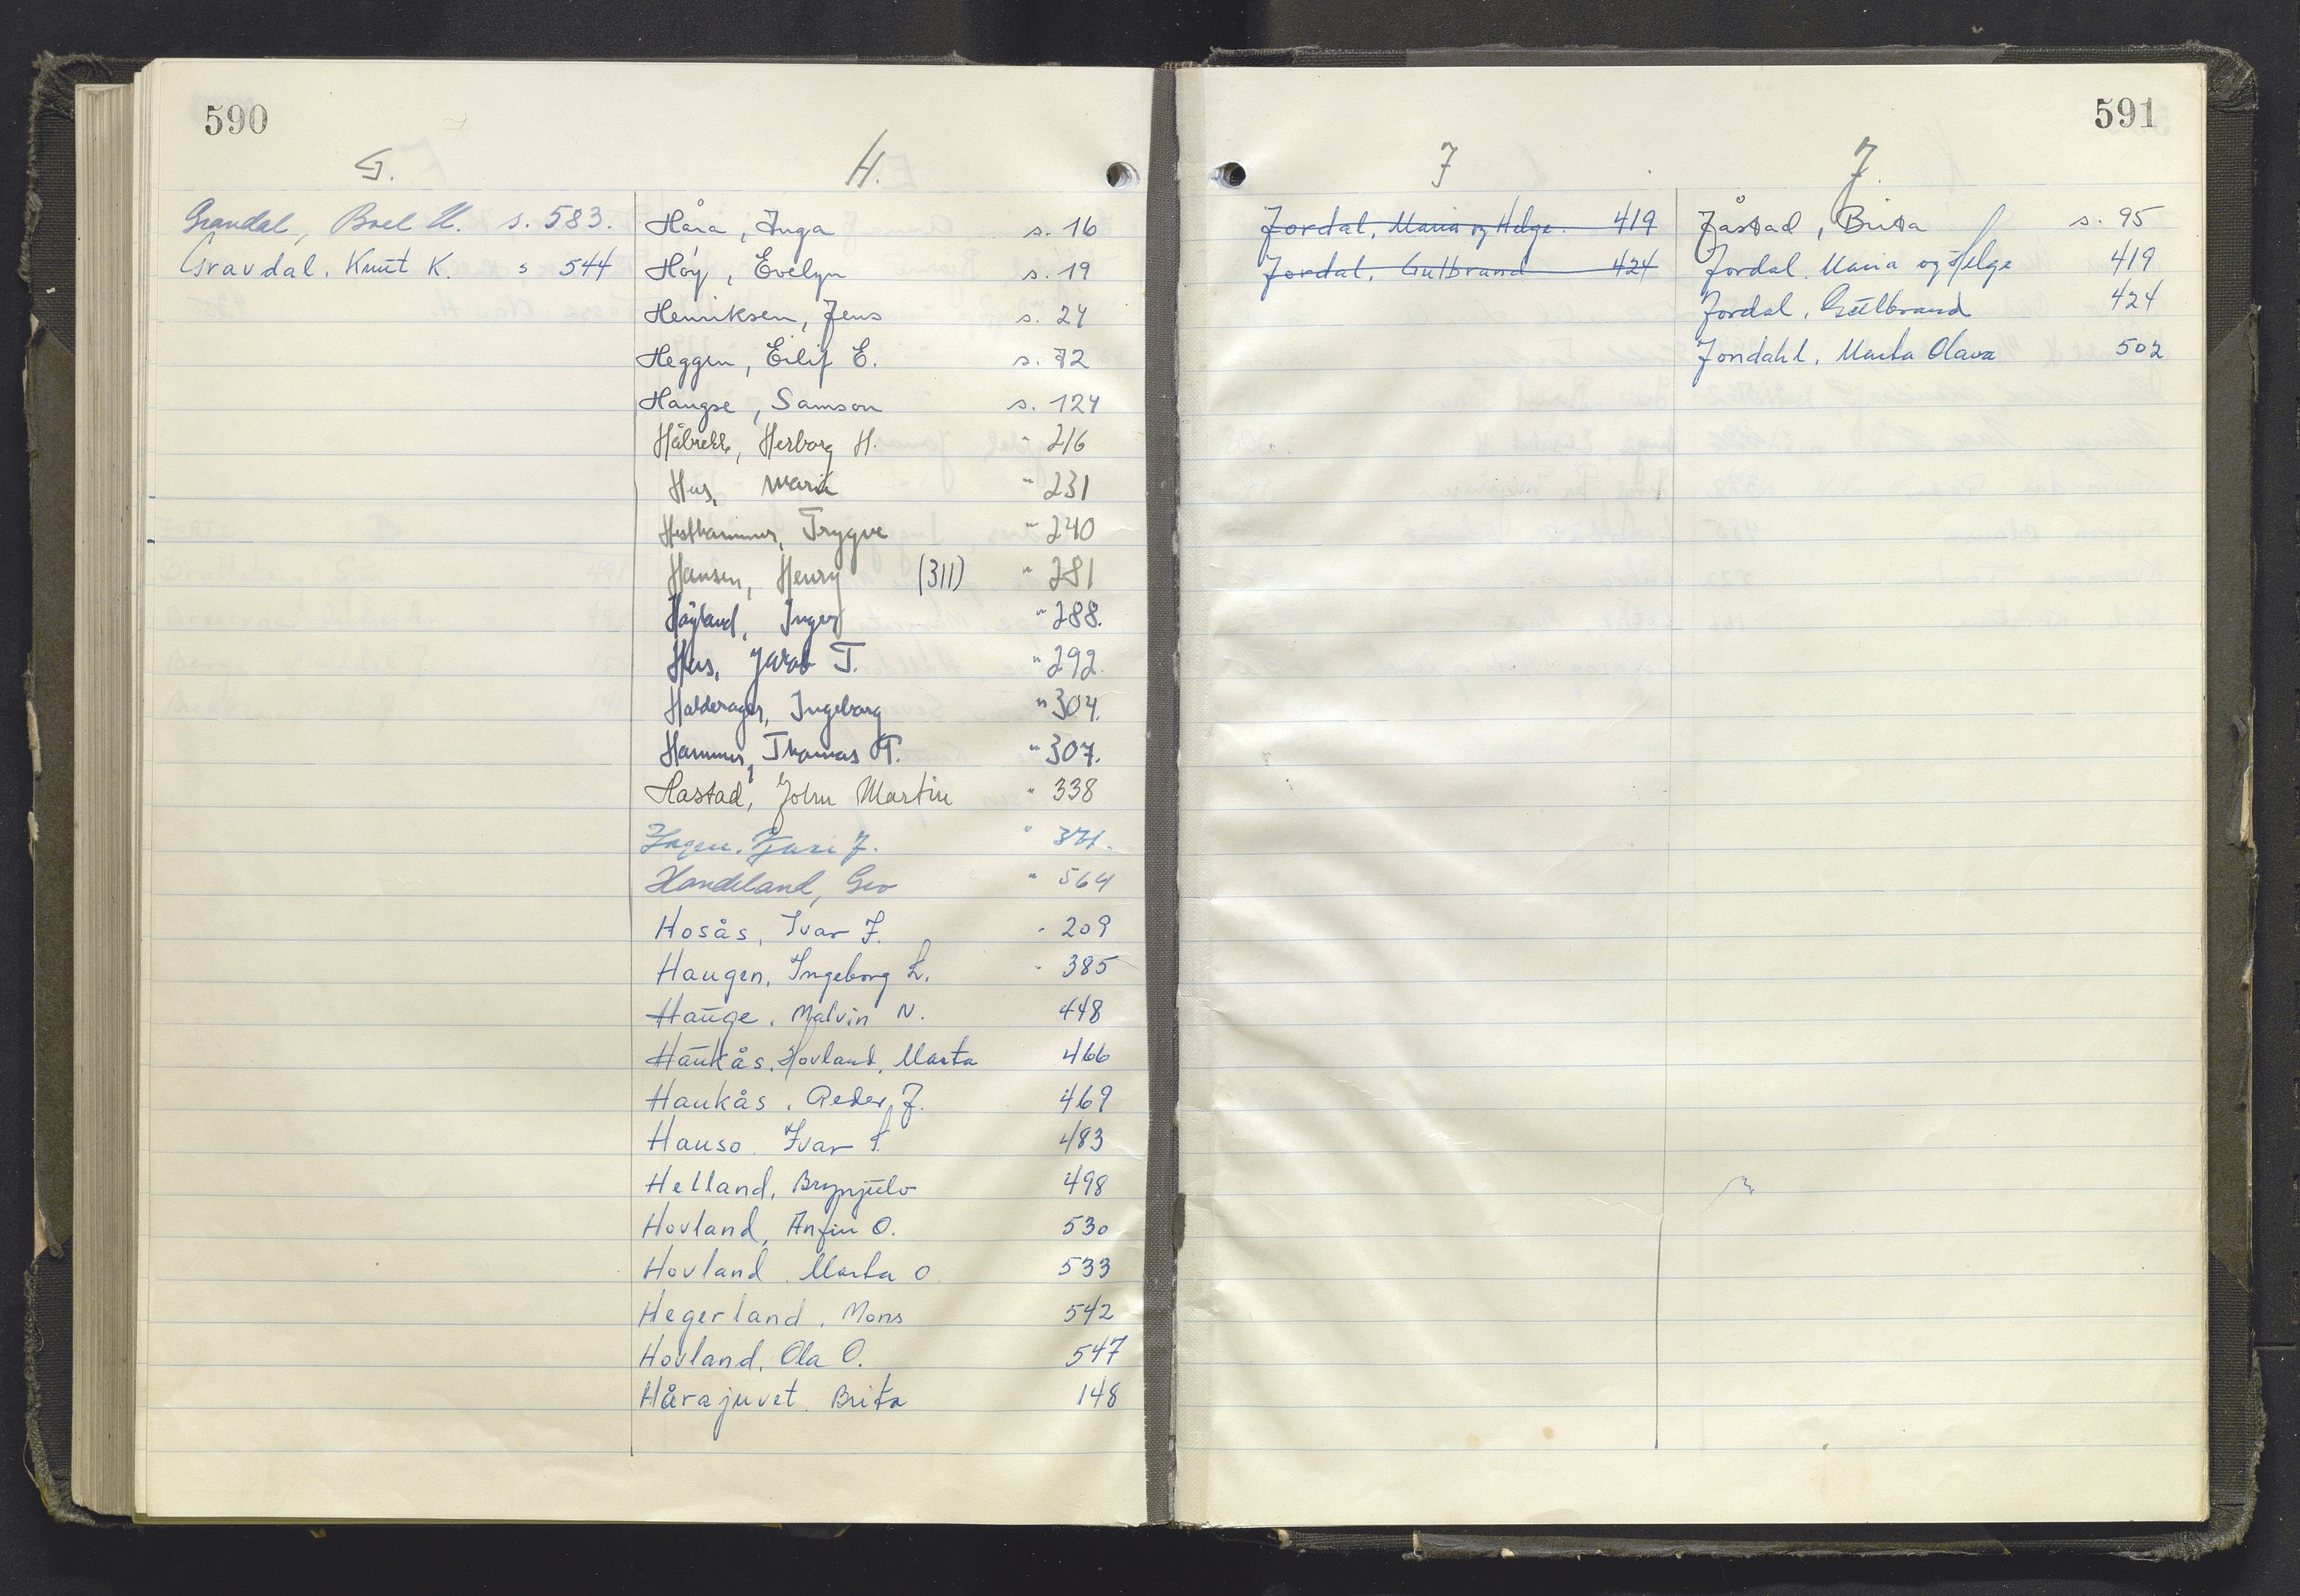 590
G.
Gravdal, Boel K. s. 583.
Gravdal, Knut K. s 544
H.
Håra, Inga s. 16
Høy, Evelyn s. 19
Henriksen, Jens s. 24
Heggen, Eilif E. s. 72
Haugse, Samson s. 124
Håbrekk, Herborg H. - 216
Hus, Maria " 231
Hesthammer, Trygve " 240
Hansen, Henry (311) " 281
Høyland, Inger " 288.
Hus, Jakob T. " 292.
Halderager, Ingeborg " 304.
Hammer, Thomas T. " 307.
Hastad, John Martin " 338
J. " 371.
Handeland, " 564
Hosås, Ivar J. - 209
Haugen, Ingeborg L. - 385
Hauge, Malvin N. 448
Haukås, Hovland, Marta 466
Haukås, Peder J. 469
Hauso. Ivar 483
Helland, Brynjulv 498
Hovland, Anfin O. 530
Hovland, Marta O. 533
Hegerland, Mons 542
Hovland, Ola O. 547
Hårajuvet. Brita 148
591
I
Jordal, Maria og Helge. 419
Jordal, Gulbrand 424
J.
Jåstad, Brita s. 95
Jordal. Maria og Helge 419
Jordal, Gulbrand 424
Jondahl, Marta Olava 502